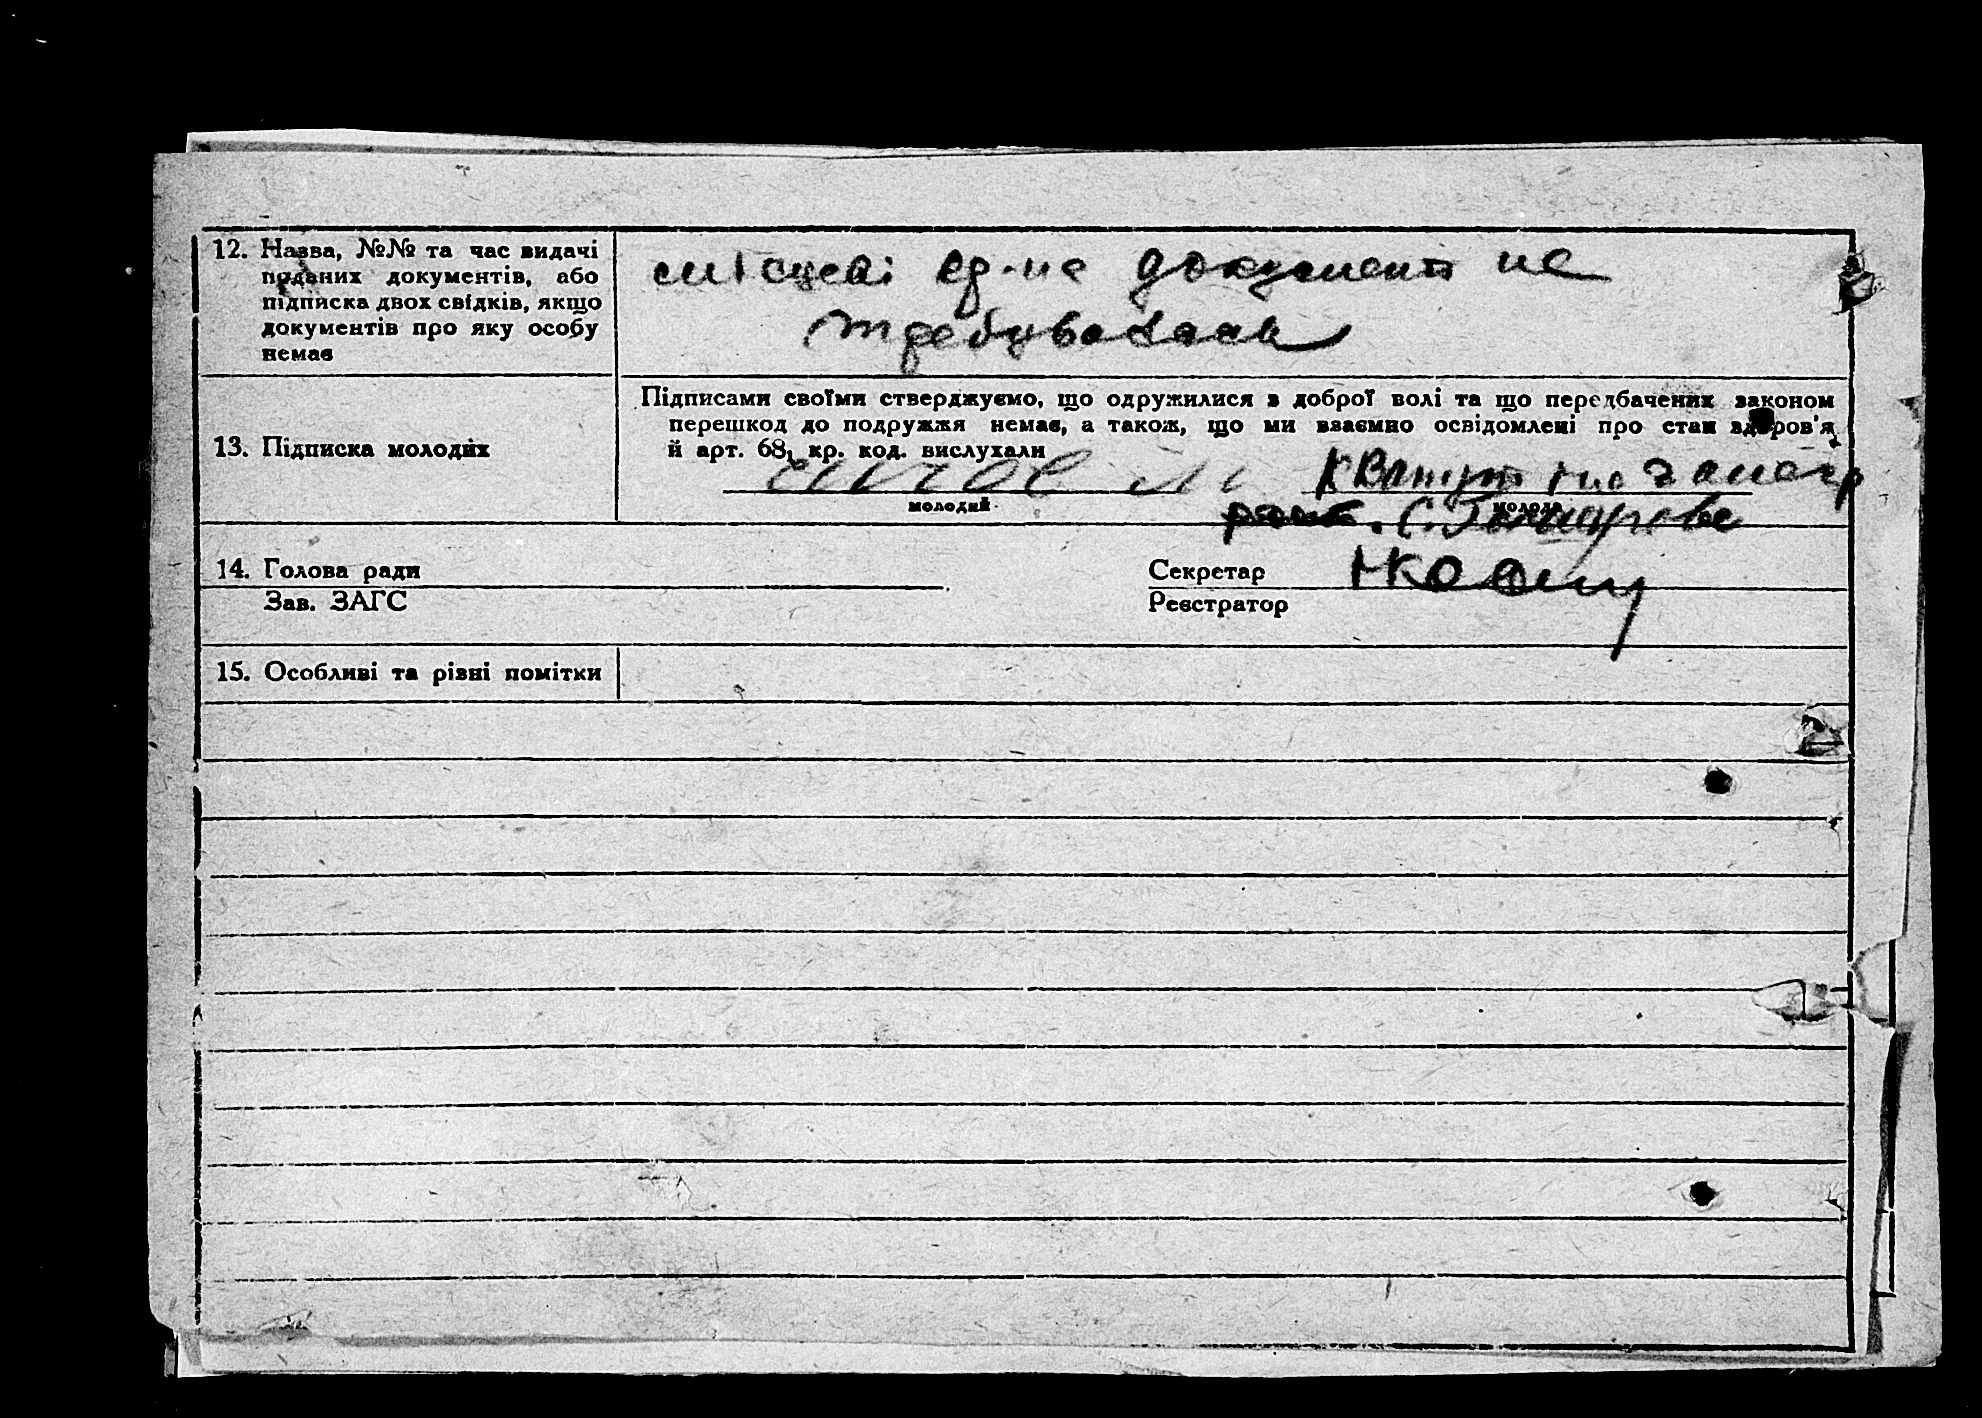 12. Назва, №№ та час видачі
поданих документів, або
підписка двох свідків, якщо
документів про яку особу
немає
місцеві гр-не документи не
требувались
13. Підписка молодих
Підписами своїми стверджуємо, що одружилися з доброї волі та що передбачених законом
перешкод до подружжя немає, а також, що ми взаємно освідомлені про стан здоров'я
й арт. 68, кр. код. вислухали
за негр
молодий
молода
14. Голова ради
Зав. ЗАГС
Секретар
Реєстратор
15. Особливі та різні помітки